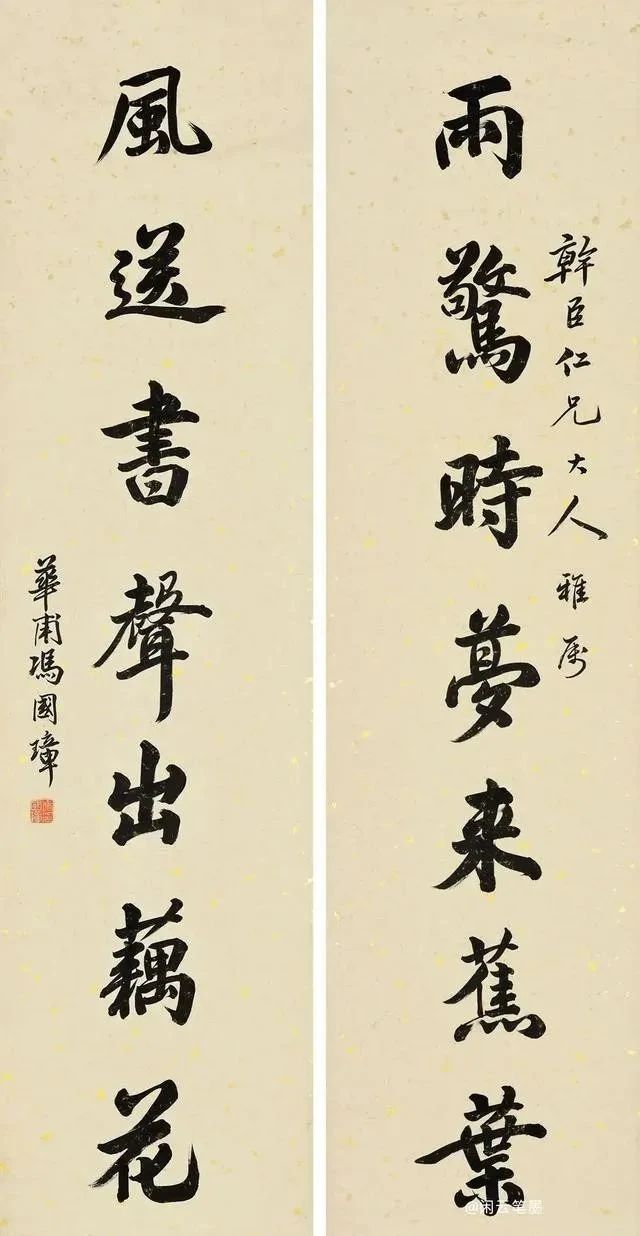 雨驚時夢来蕉葉
幹臣仁兄大人雅属
風送書聲出藕花
華甫馮國璋
@闲云笔墨